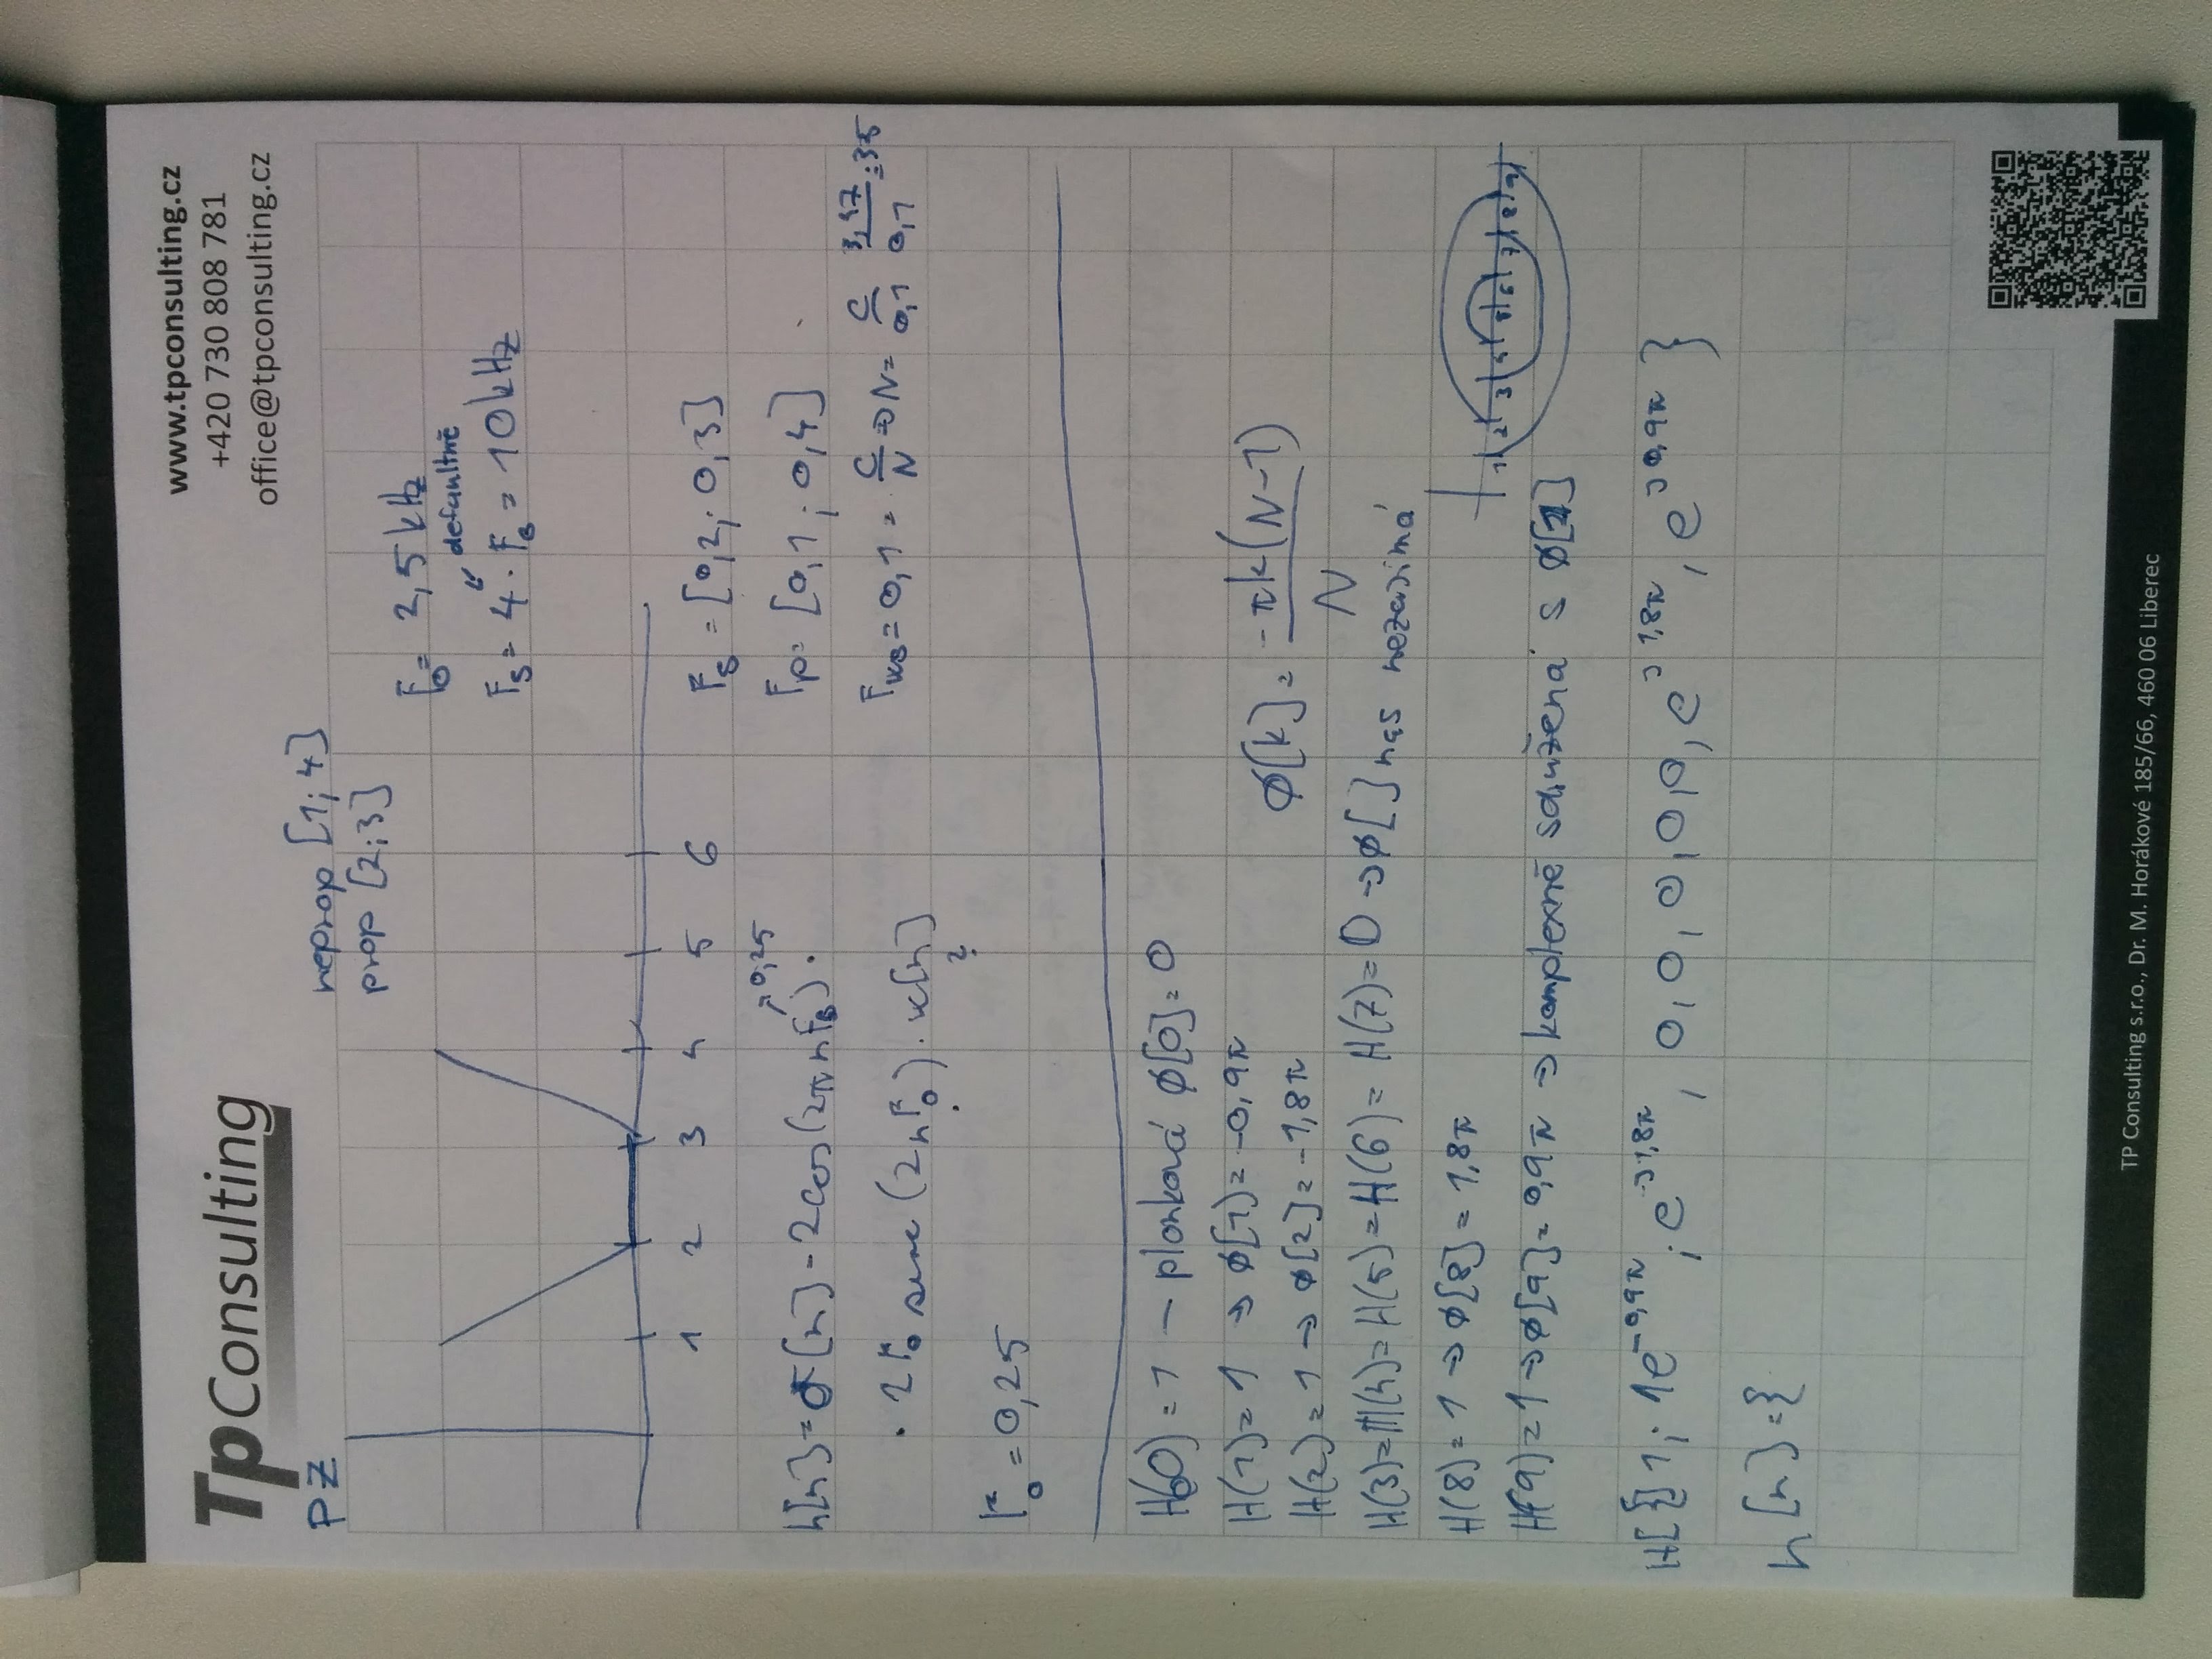 TpConsulting
www.tpconsulting.cz
+420 730 808 781
office@tpconsulting.cz
PZ
neprop [1; 4]
prop [2; 3]
F₀= 2,5kHz
defaultně
Fₛ= 4 · F₀ = 10kHz
1 2 3 4 5 6
Fₛ = [0,2; 0,3]
Fp= [0,1; 0,4]
h[n]=δ[n]-2cos(2πnF₀)· =0,25
· 2F₀ sinc (2nF₀) · w[n]
?
= 0,1 = C/N ⇒ N= C/0,1 3,47/0,1 =35
F₀ = 0,25
H(0) = 1 – ϕ[0]=0
H(1)=1 → ϕ[1]=-0,9π
ϕ[k]= -πk(N-1)/N
H(2)=1 → ϕ[2]=-1,8π
H(3)=H(4)=H(5)=H(6)= H(7)=0 → ϕ[ ] nás nezajímá
H(8)=1 → ϕ[8]= 1,8π
H(9)=1 → ϕ[9]= 0,9π → komplexně sdružená s ϕ[1]
1 2 3 4 5 6 7 8 9
H[]{1; 1e^-0,9π; e^-j1,8π, 0, 0, 0, 0, 0, e^j1,8π, e^j0,9π}
h[n]={
TP Consulting s.r.o., Dr. M. Horákové 185/66, 460 06 Liberec